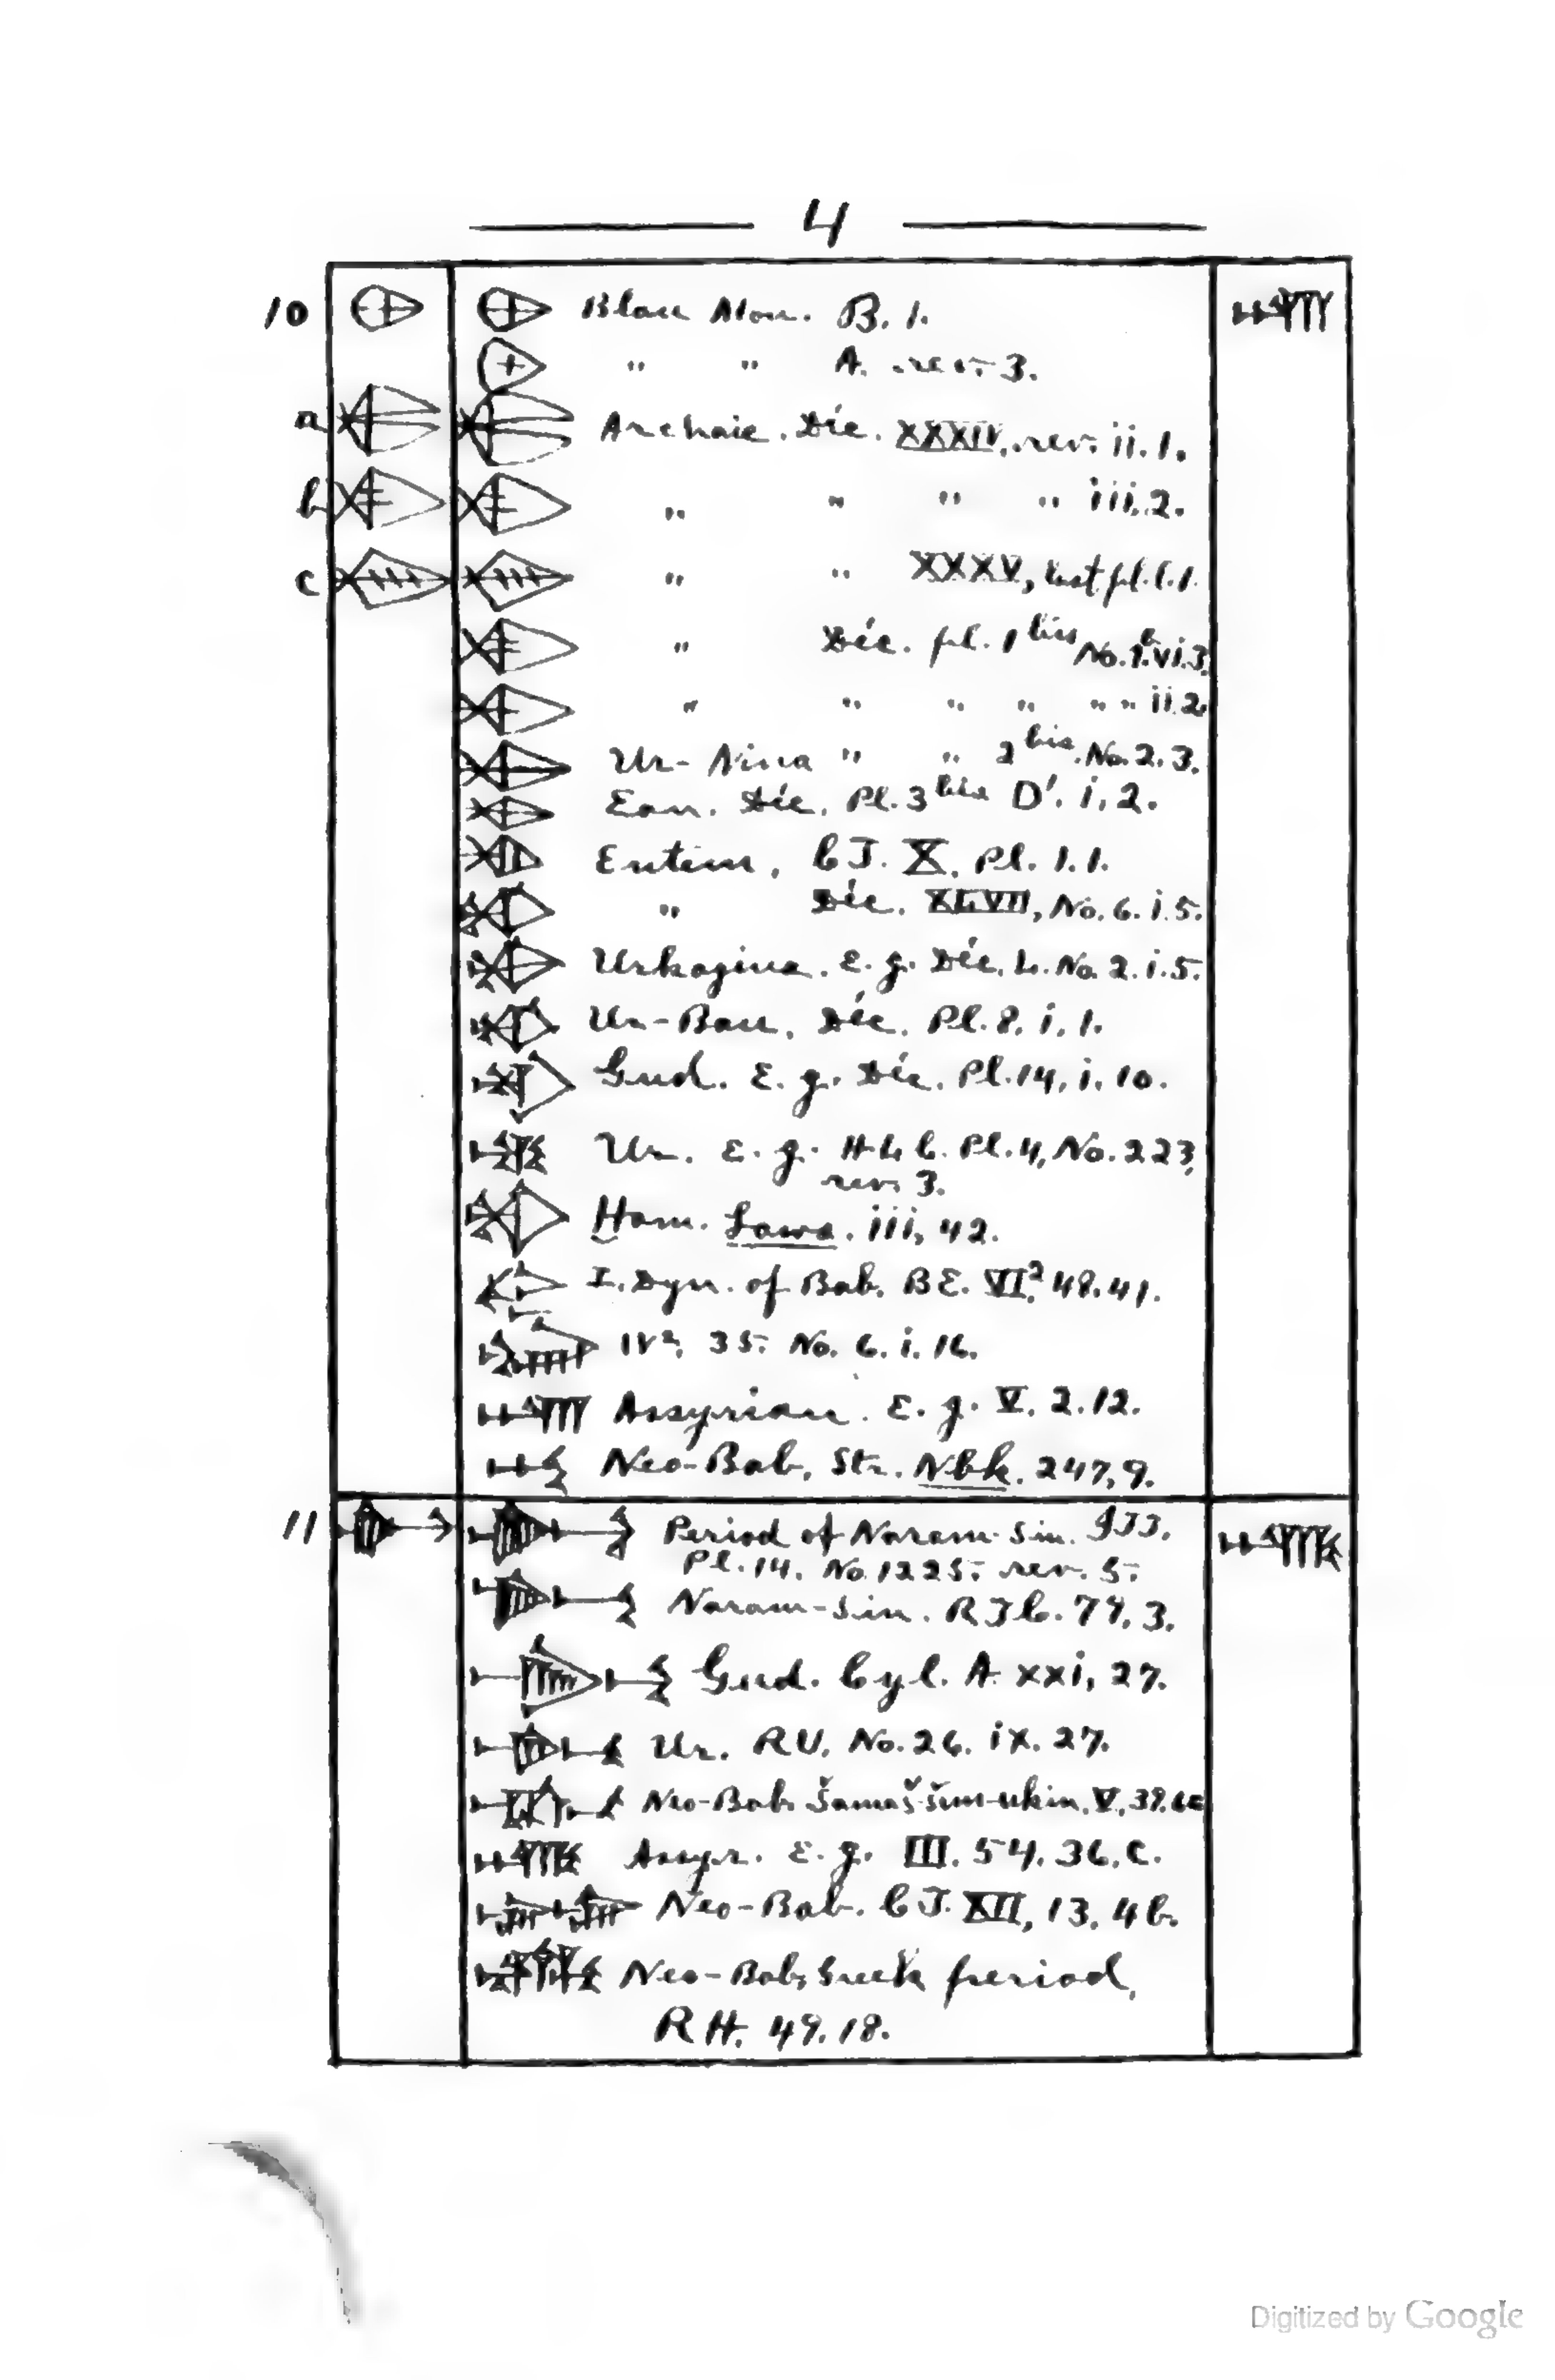 4
10 Blau Mon. B. 1.
" " A. rev. 3.
a Archaic. Déc. XXXIV, rev. ii. 1.
b " " " " iii. 2.
c " " XXXV, last pl. l. 1.
" Déc. pl. 1 bis No. 1 b. vi. 3.
" " " " " " ii. 2.
Ur-Nina " " 2 bis. No. 2. 3.
Ean. Déc. Pl. 3 bis D'. i, 2.
Entem, CT. X, Pl. 1. 1.
" Déc. XLVII, No. 6. i. 5.
Urkagina. E. g. Déc. L. No. 2. i. 5.
Ur-Bau, Déc. Pl. 8, i, 1.
Gud. E. g. Déc. Pl. 14, i. 10.
Ur. E. g. HLC. Pl. 4, No. 223,
rev. 3.
Ḫam. Laws. iii, 42.
I. Dyn. of Bab. BE. VI². 48. 41.
IV², 35. No. 6. i. 16.
Assyrian. E. g. V. 2. 12.
Neo-Bab. Str. Nbk. 247, 9.
11 Period of Naram-Sin. ITT.
Pl. 14. No. 1225. rev. 5.
Naram-Sin. RTC. 79, 3.
Gud. Cyl. A. xxi, 27.
Ur. RU. No. 26. ix. 27.
Neo-Bab. Šamaš-šum-ukin. V,
Assyr. E. g. III. 54. 36. c.
Neo-Bab. CT. XII, 13. 4 b.
Neo-Bab, Greek period,
RH. 49. 18.
Digitized by Google